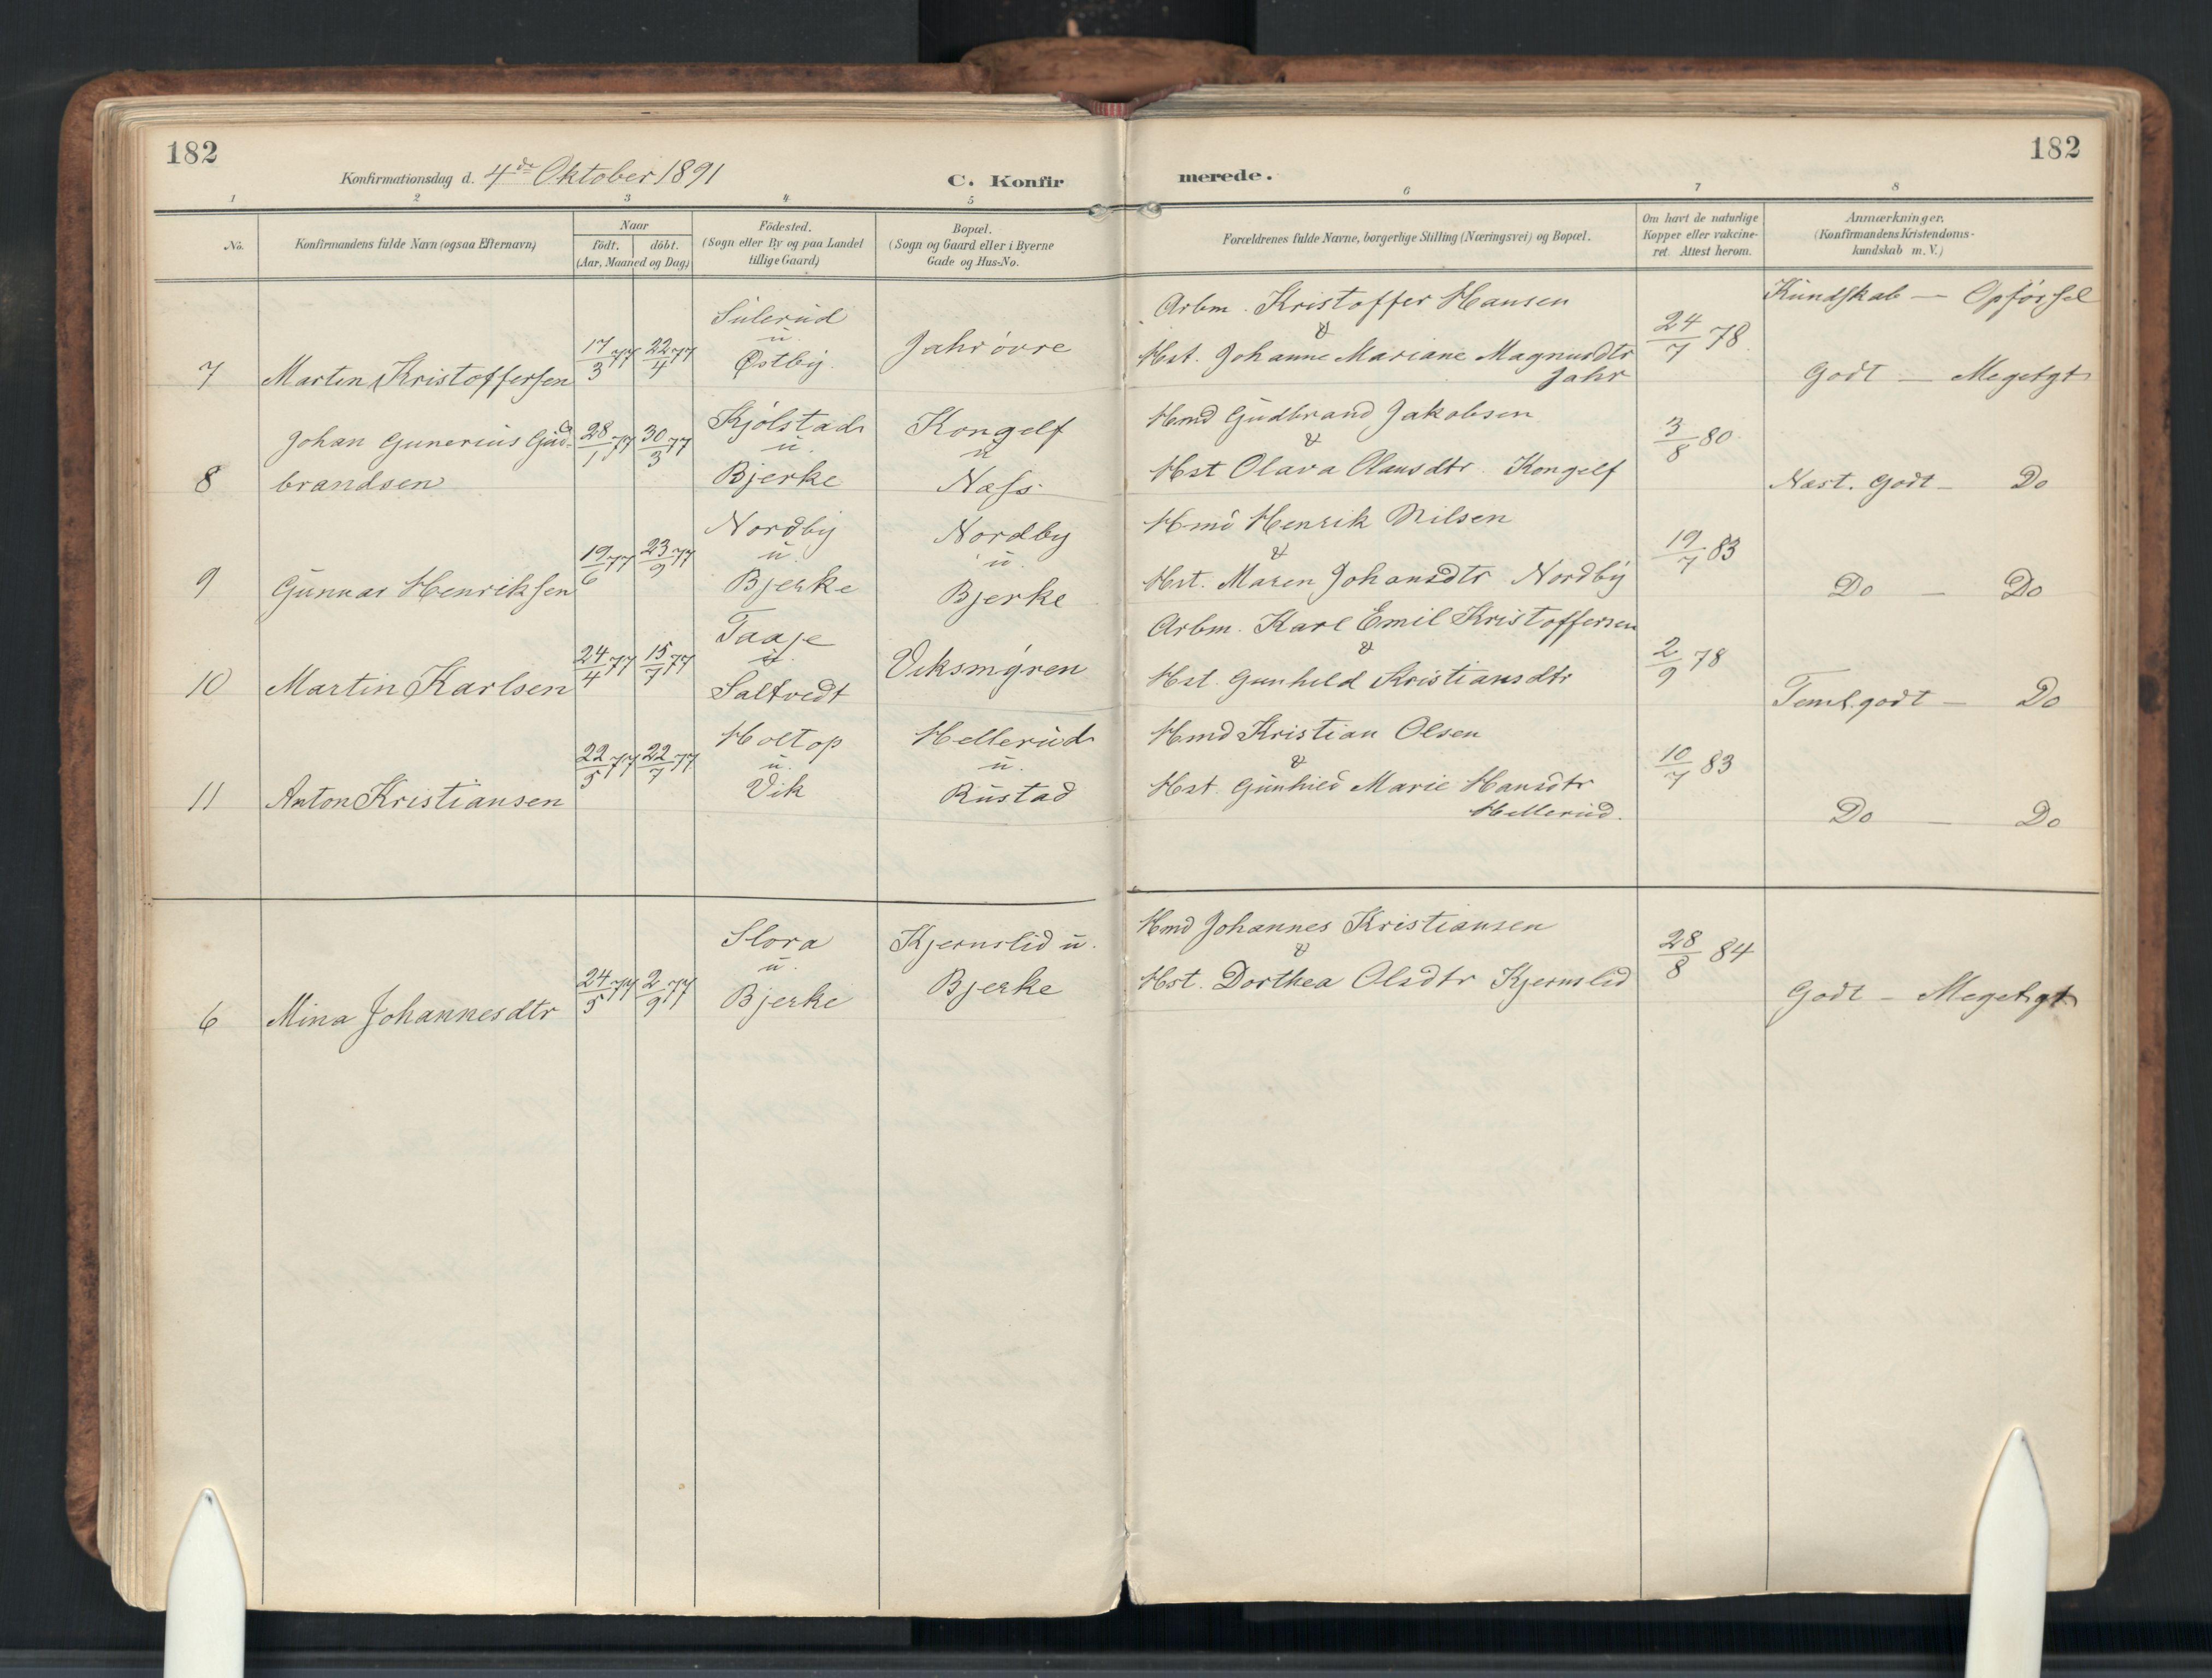 182
182
Konfirmationsdag d. 4de Oktober 1891
C. Konfirmerede.
1 2 3 4 5 6 7 8
No.
Konfirmandens fulde Navn (ogsaa Efternavn)
Naar
födt. döbt.
(Aar, Maaned og Dag)
Födested.
(Sogn eller By og paa Landet
tillige Gaard)
Bopæl.
(Sogn og Gaard eller i Byerne
Gade og Hus-No.
Forældrenes fulde Navne, borgerlige Stilling (Næringsvei) og Bopæl.
Om havt de naturlige
Kopper eller vakcine-
ret. Attest herom.
Anmærkninger.
(Konfirmandens Kristendoms-
kundskab m. V.)
Kundskab — Opførsel
Sulerud
u.
Østby.
Jahr øvre
Arbm. Kristoffer Hansen
&
Hst. Johanne Mariane Magnusdtr
Jahr
7 Martin Kristoffersen 17/3 77 22/4 77
24/7 78.
Godt — Megetgt
Johan Gunerius Gud-
8 brandsen 28/1 77 30/3 77
Kjölstad
u.
Bjerke
Kongelf
u
Næss
Hmd Gudbrand Jakobsen
&
Hst Olava Olausdtr. Kongelf
3/8 80.
Næst. Godt — Do
9 Gunnar Henriksen 19/6 77 23/9 77
Nordby
u.
Bjerke
Nordby
u.
Bjerke
Hmd Henrik Nilsen
&
Hst. Maren Johansdtr Nordby
19/7 83
Do — Do
10 Martin Karlsen 24/4 77 15/7 77
Taaje
u.
Saltvedt
Viksmyren
Arbm. Karl Emil Kristoffersen
&
Hst. Gunhild Kristiansdtr
2/9 78
Teml. godt — Do
11 Anton Kristiansen 22/5 77 22/7 77
Holtop
u.
Vik
Hellerud
u.
Rustad
Hmd Kristian Olsen
&
Hst. Gunhild Marie Hansdtr
Hellerud.
10/7 83
Do — Do
6 Mina Johannesdtr 24/5 77 2/9 77
Slora
u.
Bjerke
Kjernslid u.
Bjerke
Hmd Johannes Kristiansen
&
Hst. Dorthea Olsdtr Kjernslid
28/8 84
Godt — Megetgt